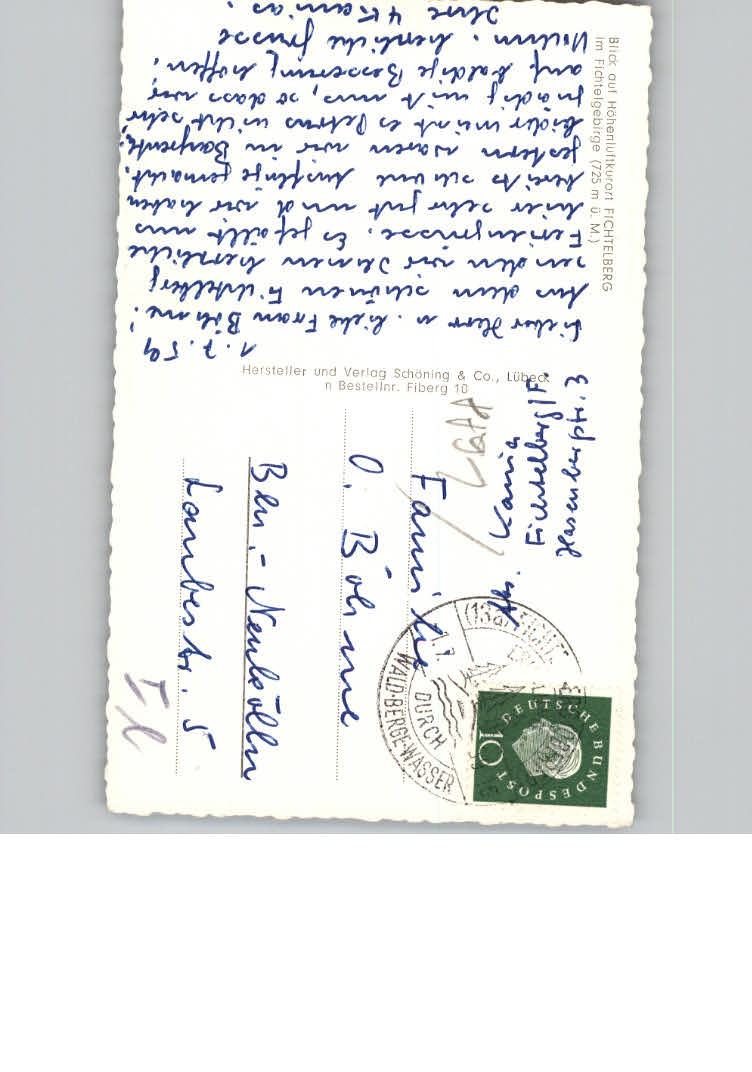 Blick auf Höhenluftkurort FICHTELBERG
im Fichtelgebirge (725 m ü. M.)
1.7.59
Lieber Herr u. liebe Frau Böhme!
Aus dem schönen Fichtelberg
senden wir Ihnen herzliche
Feriengrüsse. Es gefällt uns
hier sehr gut und wir haben
bereits schöne Ausflüge gemacht.
Gestern waren wir in Bayreuth.
Leider meint es Petrus nicht sehr
gnädig mit uns, so dass wir
auf baldige Besserung hoffen.
Ihnen herzliche Grüsse
Ihre 4 Kanias.
Hersteller und Verlag Schöning & Co., Lübeck
n Bestellnr. Fiberg 10
Abs. Kania
Fichtelberg/F.
Hasenbergstr. 3
Familie
O. Böhme
Bln.-Neukölln
Lambertstr. 5
(13a) FICHTEL
DURCH
WALD·BERGE·WASSER
DEUTSCHE BUNDESPOST
10